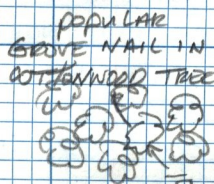 POPULAR
GROVE NAIL IN
COTTONWOOD TREE